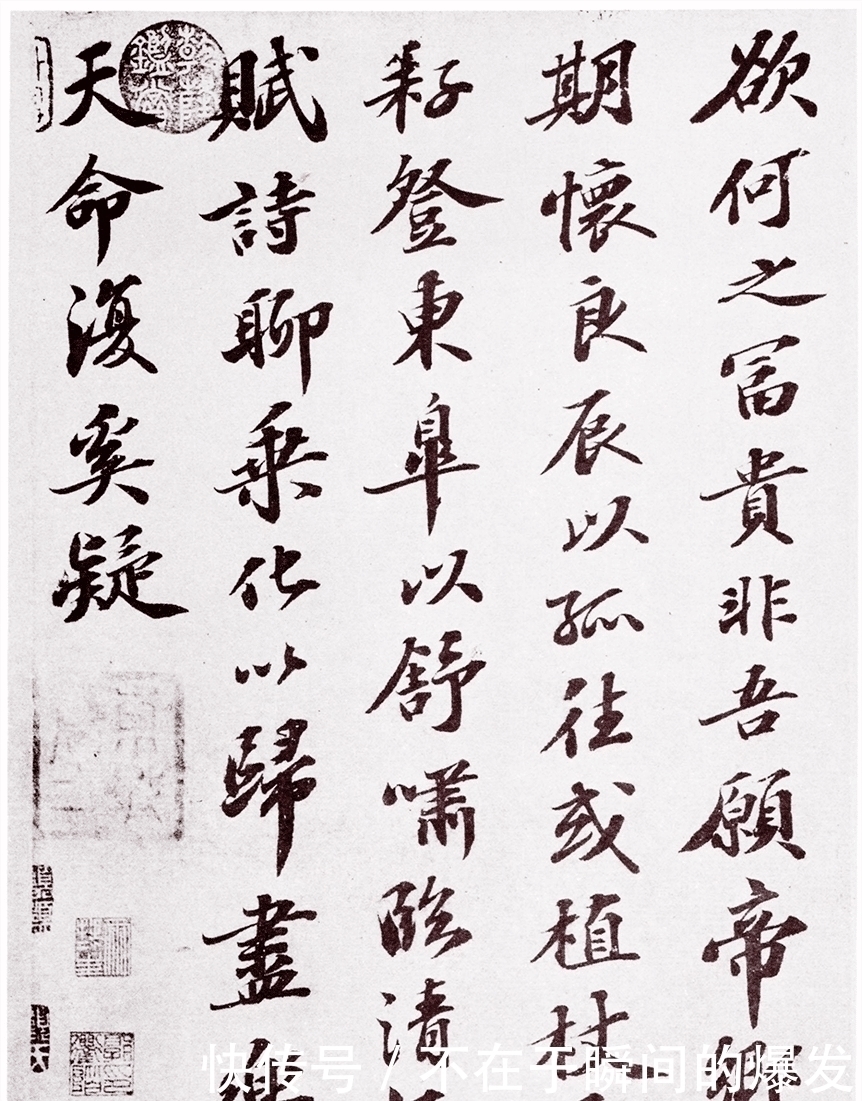 欲何之富貴非吾願帝鄉
期懷良辰以孤往或植杖
耔登東皋以舒嘯臨清
賦詩聊乘化以歸盡樂
天命復奚疑
乾隆鑑賞
快传号 / 不在于瞬间的爆发